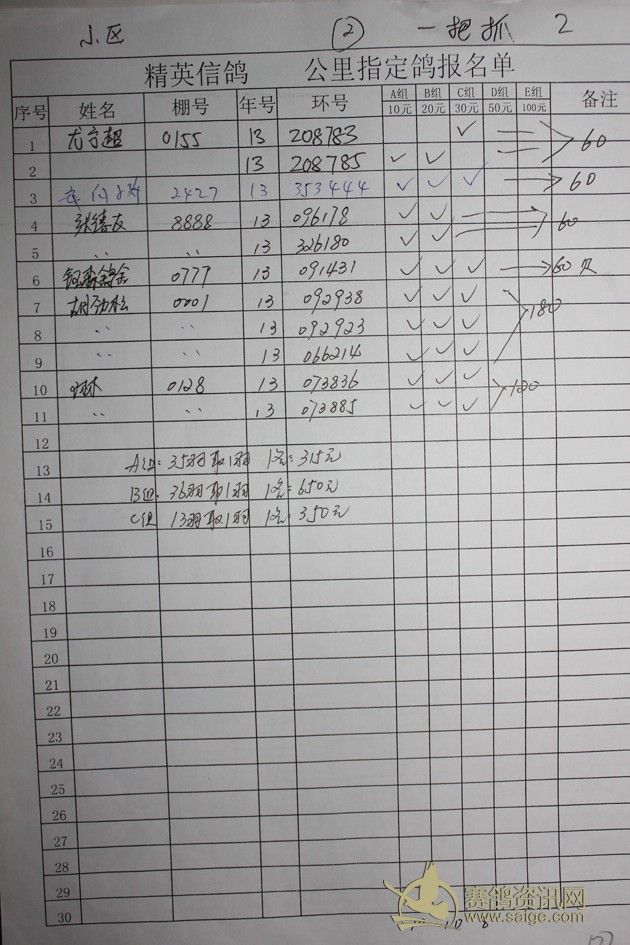 小区 ② 一把抓 2
精英信鸽 公里指定鸽报名单
序号 姓名 棚号 年号 环号 A组 10元 B组 20元 C组 30元 D组 50元 E组 100元 备注
1 尤宁超 0155 13 208783 ✓ 60
2 13 208785 ✓ ✓
3 2427 13 353444 ✓ ✓ ✓ 60
4 8888 13 096178 ✓ ✓ 60
5 〃 〃 13 326180 ✓ ✓
6 0777 13 091431 ✓ ✓ ✓ 60
7 胡劲松 0001 13 092938 ✓ ✓ ✓ 180
8 〃 〃 13 092923 ✓ ✓ ✓
9 〃 〃 13 066214 ✓ ✓ ✓
10 0128 13 073836 ✓ ✓ ✓ 120
11 〃 〃 13 073885 ✓ ✓ ✓
12
13 A组: 35羽取1羽 1名: 315元
14 B组: 36羽取1羽 1名: 650元
15 C组 13羽取1羽 1名: 350元
16
17
18
19
20
21
22
23
24
25
26
27
28
29
30
赛鸽资讯网
www.saige.com